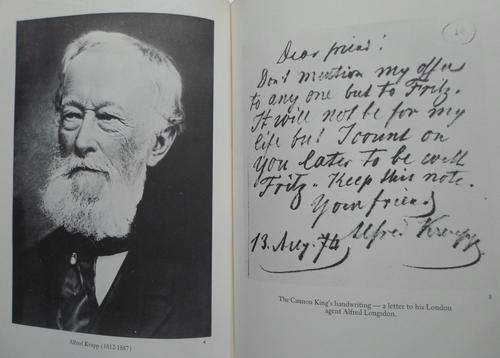 Alfred Krupp (1812-1887)
Dear friend!
Don't mention my offer
to any one but to Fritz.
It will not be for my
life but I count on
you later to be with
Fritz. Keep this note.
Your friend
Alfred Krupp
13. Aug. 74
The Cannon King's handwriting — a letter to his London
agent Alfred Longsdon.